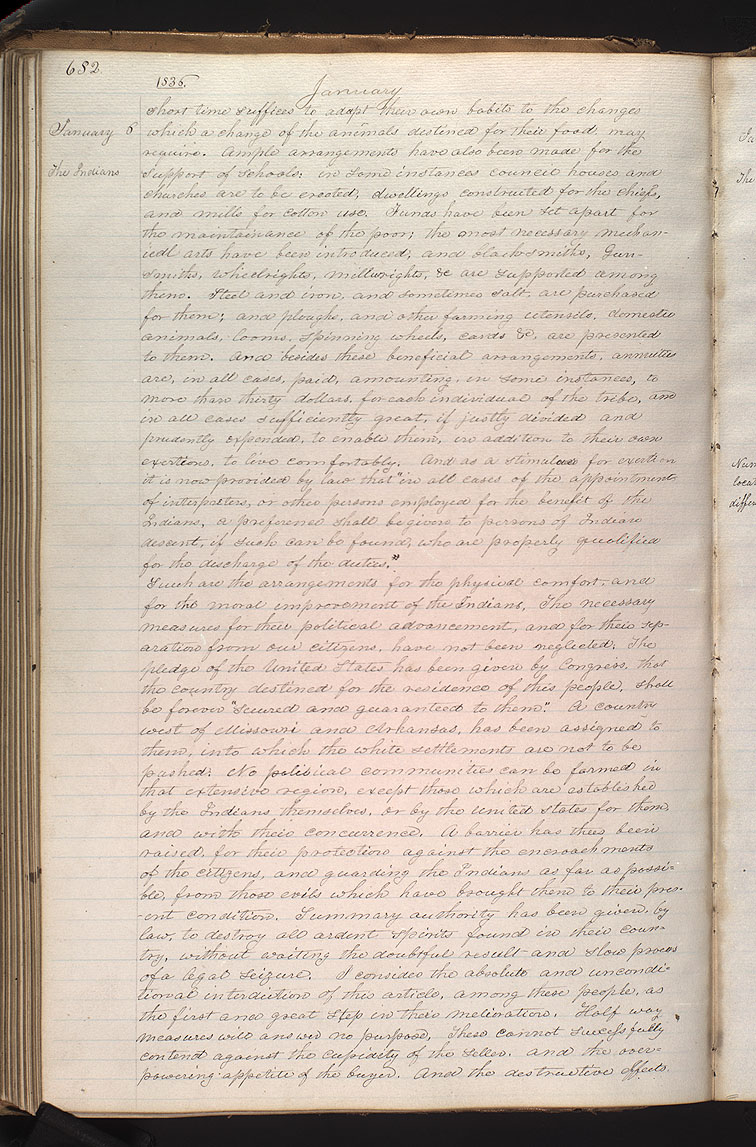 682
1836.
January
January 6
The Indians
short time suffices to adapt their own habits to the changes
which a change of the animals destined for their food may
require. Ample arrangements have also been made for the
support of schools; in some instances council houses and
churches are to be erected, dwellings constructed for the chiefs,
and mills for cotton use. Funds have been set apart for
the maintainance of the poor; the most necessary mechan-
icdl arts have been introduced, and blacksmiths, Gun-
smiths, wheelrights, millwrights, &c are supported among
them. Steel and iron, and sometimes salt, are purchased
for them; and ploughs, and other farming utensils, domestic
animals, looms, spinning wheels, cards &c, are presented
to them. And besides these beneficial arrangements, annuities
are, in all cases, paid, amounting, in some instances, to
more than thirty dollars, for each individual of the tribe, and
in all cases sufficiently great, if justly divided and
prudently expended, to enable them, in addition to their own
exertion, to live comfortably. And as a stimulus for exertion
it is now provided by law that "in all cases of the appointment
of interpeters, or other persons employed for the benefit of the
Indians, a preference shall be given to persons of Indian
descent, if such can be found, who are properly qualified
for the discharge of the duties."
Such are the arrangements for the physical comfort, and
for the moral improvement of the Indians. The necessary
measures for their political advancement, and for their sep-
aration from our citizens, have not been neglected. The
pledge of the United States has been given by Congress, that
the country destined for the residence of this people, shall
be forever "secured and guaranteed to them." A country
west of Missouri and Arkansas, has been assigned to
them, into which the white settlements are not to be
pushed. No political communities can be formed in
that extensive region, except those which are established
by the Indians themselves, or by the United States for them,
and with their concurrence. A barrier has thus been
raised, for their protection against the encroachments
of the citizens, and guarding the Indians as far as possi-
ble, from those evils which have brought them to their pres-
-ent condition. Summary authority has been given, by
law, to destroy all ardent spirits found in their coun-
try, without waiting the doubtful result and slow process
of a legal seizure. I consider the absolute and uncondi-
tional interdiction of this article, among these people, as
the first and great step in their melioration. Half way
measures will answer no purpose. These cannot successfully
contend against the cupidity of the seller, and the over-
powering appetite of the buyer. And the destructive effects
The
Num
locat
differ